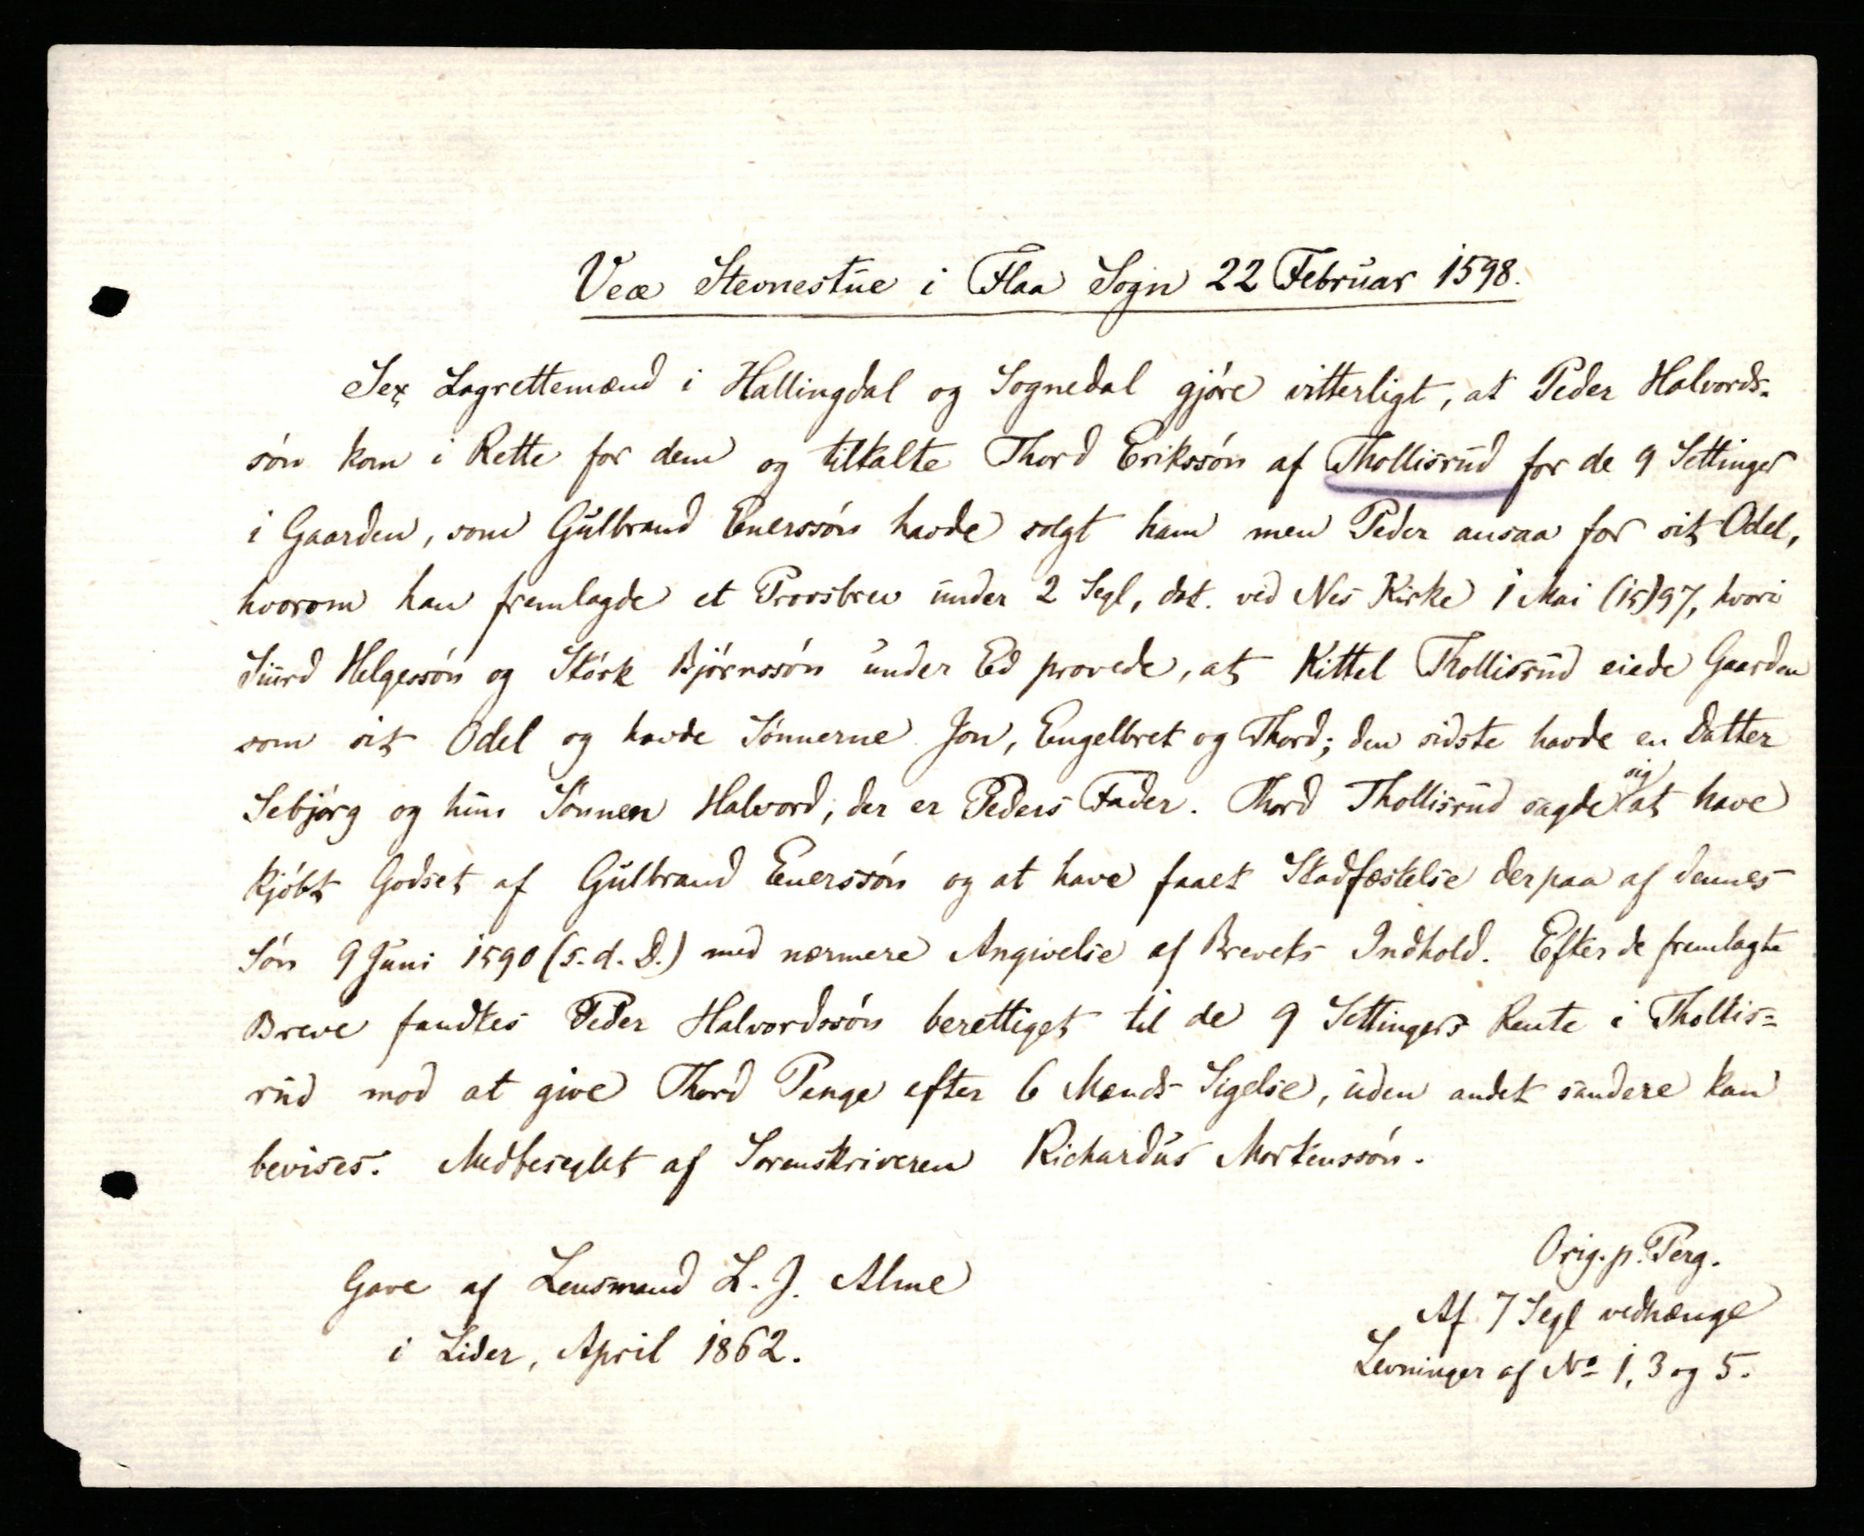 Veæ Stevnestue i Flaa Sogn 22 Februar 1598.
Sex Lagrettemænd i Hallingdal og Sognedal gjöre vitterligt, at Peder Halvords-
sön kom i Rette for dem og tiltalte Thord Erikssön af Thollisrud for de 9 Settinger
i Gaarden, som Gulbrand Enerssön havde solgt ham men Peder ansaa for sit Odel,
hvorom han fremlagde et Provsbrev under 2 Segl, dat. ved Nes Kirke 1 Mai (15)97, hvori
Siurd Helgessön og Störk Björnssön under Ed provede, at Kittel Thollisrud eiede Gaarden
som sit Odel og havde Sönnerne Jon, Engelbret og Thord; den sidste havde en Datter
Sebjörg og hun Sönnen Halvord, der er Peders Fader. Thord Thollisrud sagde sig at have
kjöbt Godset af Gulbrand Enerssön og at have faaet Stadfæstelse derpaa af dennes
Sön 9 Juni 1590 (s. d. D.) med nærmere Angivelse af Brevets Indhold. Efter de fremlagte
Breve fandtes Peder Halvordssön berettiget til de 9 Settingers Rente i Thollis=
rud mod at give Thord Penge efter 6 Mænds Sigelse, uden andet sandere kan
bevises. Medbeseglet af Sorenskriveren Richardus Mortenssön.
Gave af Lensmand L. J. Alme
i Lider, April 1862.
Orig. p. Perg.
Af 7 Segl vedhænge
Levninger af No 1, 3 og 5.